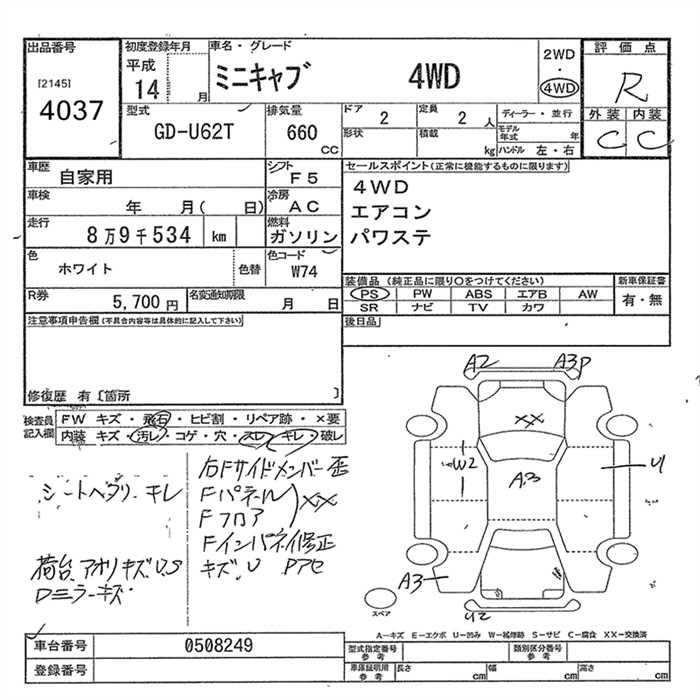 出品番号
[2145]
4037
初度登録年月
平成
14 月
車名・グレード
ミニキャブ 4WD
2WD
・
4WD
評価点
R
外装 内装
C C
型式
GD-U62T
排気量
660
CC
ドア 2
定員 2 人
ディーラー・並行
形状
積載 kg
モデル年式 年
ハンドル 左・右
車歴
自家用
シフト
F5
車検
年 月( 日)
冷房
AC
走行
8万9千534 km
燃料
ガソリン
色
ホワイト
色替
色コード
W74
R券
5,700 円
名変通知期限
月 日
セールスポイント(正常に機能するものに限ります)
4WD
エアコン
パワステ
装備品(純正品に限り○をつけてください)
新車保証書
PS PW ABS エアB AW
有・無
SR ナビ TV カワ
後日品
注意事項申告欄(不具合内容等は具体的に記入して下さい)
修復歴 有〔箇所 〕
検査員記入欄
FW キズ・飛石・ヒビ割・リペア跡・×要
内装 キズ・汚レ・コゲ・穴・スレ・キレ・破レ
シートヘタリ・キレ
荷台、アオリキズU.S
Dミラーキズ
右Fサイドメンバー歪
Fパネル
Fフロア
XX
Fインパネイ修正
キズ.U
A2
A3P
XX
W2
A3
U
A3
U2
スペア
A―キズ E―エクボ U―凹み W―補修跡 S―サビ C―腐食 XX―交換済
車台番号
0508249
登録番号
型式指定番号
参考
類別区分番号
参考
車庫証明用
参考
長さ cm
幅 cm
高さ cm